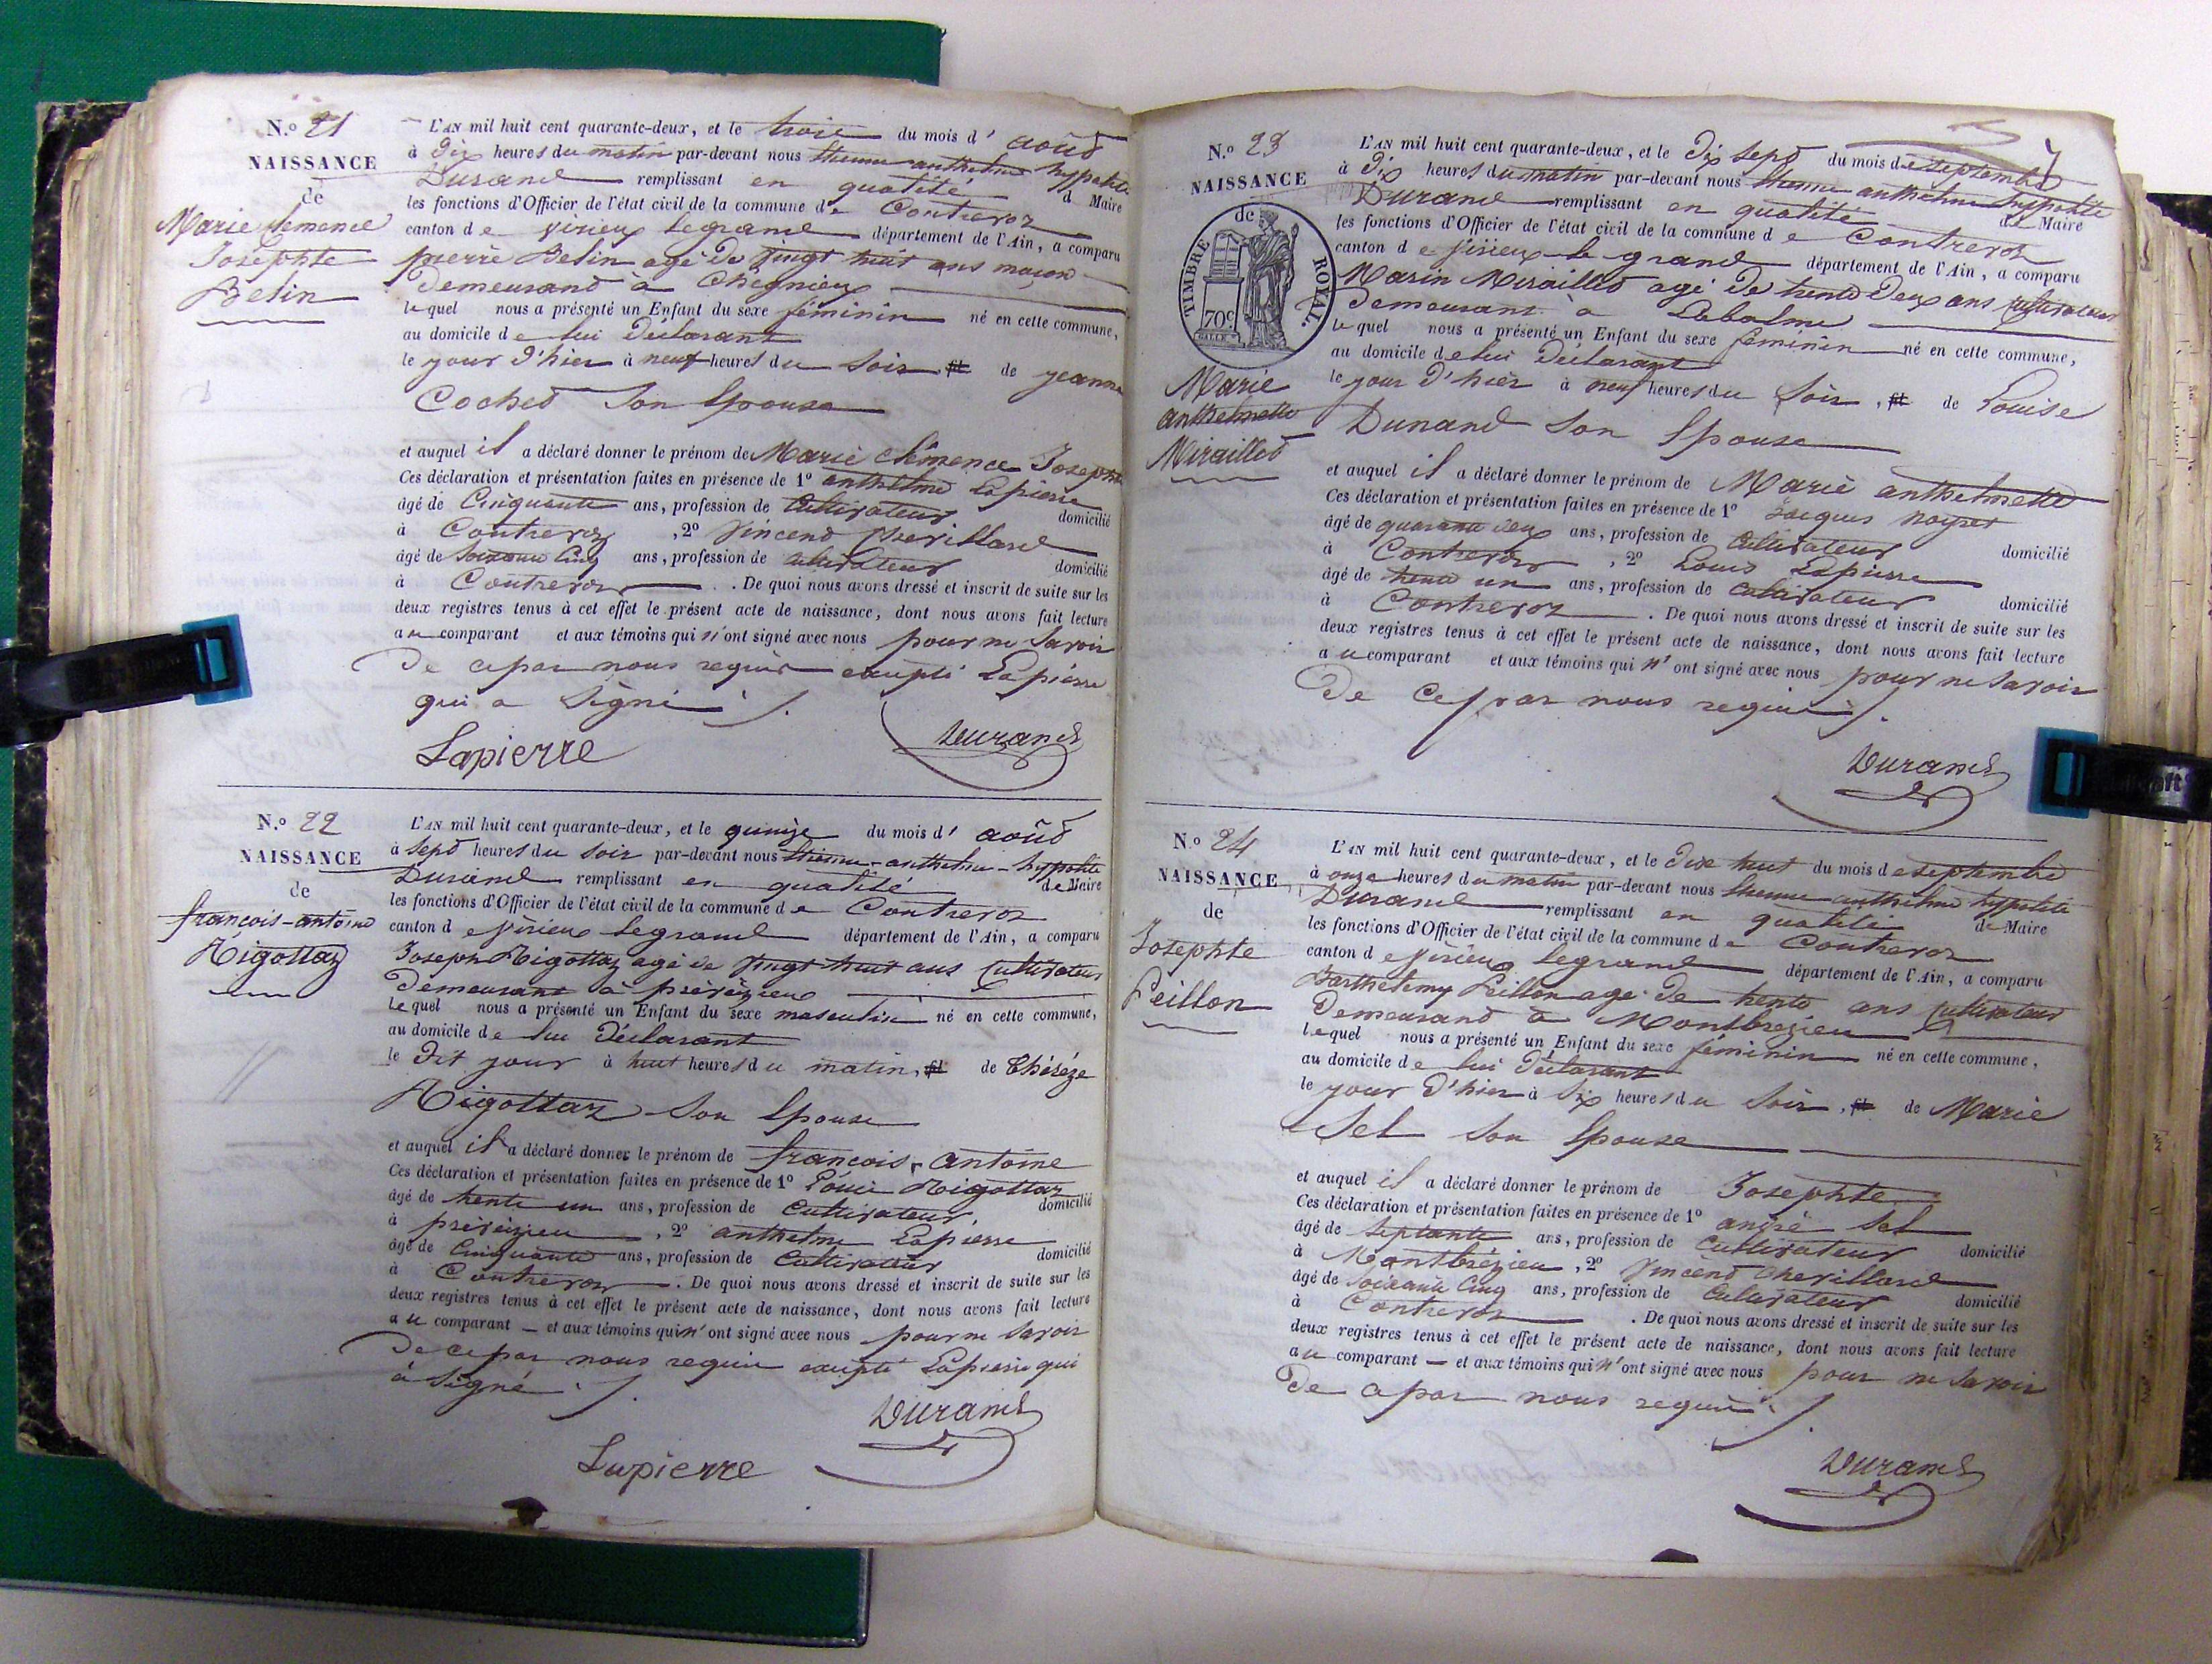 N.º 21
NAISSANCE
de
Marie clemence
Josephte
Belin
L'AN mil huit cent quarante-deux, et le trois du mois d' août
à Dix heures du matin par-devant nous Etienne anthelme hyppolite
Durand remplissant en qualité d Maire
les fonctions d'Officier de l'état civil de la commune de Contrevoz
canton de virieux legrand département de l'Ain, a comparu
pierre Belin agé de vingt huit ans maçon
demeurand à Chegnieux
lequel nous a présenté un Enfant du sexe féminin né en cette commune,
au domicile de lui déclarant
le jour d'hier à neuf heures du soir, fil de jeanne
Coched son Epouse
et auquel il a déclaré donner le prénom de Marie clémence Joseph
Ces déclaration et présentation faites en présence de 1º anthelme Lapierre
âgé de Cinquante ans, profession de Cultivateur domicilié
à Contrevoz, 2º vincend Chevilland
âgé de soixante Cinq ans, profession de cultivateur domicilié
à Contrevoz. De quoi nous avons dressé et inscrit de suite sur les
deux registres tenus à cet effet le présent acte de naissance, dont nous avons fait lecture
au comparant et aux témoins qui n'ont signé avec nous pour ne savoir
de ce par nous requis excepté Lapierre
qui a signé
Lapierre
Durand
N.º 22
NAISSANCE
de
francois-antoine
Rigottaz
L'AN mil huit cent quarante-deux, et le quinze du mois d' août
à sept heures du soir par-devant nous Etienne-anthelme-hyppolite
Durand remplissant en qualité de Maire
les fonctions d'Officier de l'état civil de la commune de Contrevoz
canton de virieux legrand département de l'Ain, a comparu
Joseph Rigottaz agé de vingt huit ans cultivateur
demeurant à préveizieux
lequel nous a présenté un Enfant du sexe masculin né en cette commune,
au domicile de lui Déclarant
le dit jour à huit heures du matin, fil de Thérèze
Rigottaz son Epouse
et auquel il a déclaré donner le prénom de francois, antoine
Ces déclaration et présentation faites en présence de 1º Louis Rigottaz
âgé de trente un ans, profession de Cultivateur, domicilié
à préveizieu, 2º anthelme Lapierre
âgé de Cinquante ans, profession de Cultivateur domicilié
à Contrevoz. De quoi nous avons dressé et inscrit de suite sur les
deux registres tenus à cet effet le présent acte de naissance, dont nous avons fait lecture
au comparant — et aux témoins qui n'ont signé avec nous pour ne savoir
de ce par nous requis excepté Lapierre qui
a signé
Durand
Lapierre
N.º 23
NAISSANCE
de
TIMBRE ROYAL.
70c
Marie
anthelmette
Miraillod
L'AN mil huit cent quarante-deux, et le Dix sept du mois de septembre
à Dix heures du matin par-devant nous Etienne anthelme hyppolite
Durand remplissant en qualité de Maire
les fonctions d'Officier de l'état civil de la commune de Contrevoz
canton de virieux le grand département de l'Ain, a comparu
Marin Miraillod agé de trente deux ans cultivateur
demeurant à Labalme
lequel nous a présenté un Enfant du sexe féminin né en cette commune,
au domicile de lui Déclarant
le jour d'hier à neuf heures du soir, fil de Louise
Dunand son Epouse
et auquel il a déclaré donner le prénom de Marie anthelmette
Ces déclaration et présentation faites en présence de 1º Jacques
âgé de quarante deux ans, profession de Cultivateur domicilié
à Contrevoz, 2º Louis Lapierre
âgé de trente un ans, profession de Cultivateur domicilié
à Contrevoz. De quoi nous avons dressé et inscrit de suite sur les
deux registres tenus à cet effet le présent acte de naissance, dont nous avons fait lecture
au comparant et aux témoins qui n'ont signé avec nous pour ne savoir
de ce par nous requis
Durand
N.º 24
NAISSANCE
de
Josephte
Peillon
L'AN mil huit cent quarante-deux, et le Dix huit du mois de septembre
à onze heures du matin par-devant nous Etienne anthelme hyppolite
Durand remplissant en qualité de Maire
les fonctions d'Officier de l'état civil de la commune de Contrevoz
canton de virieux legrand département de l'Ain, a comparu
Barthelemy Peillon agé de trente ans cultivateur
demeurand à Montbrezieu
lequel nous a présenté un Enfant du sexe féminin né en cette commune,
au domicile de lui Déclarant
le jour d'hier à six heures du soir, fil de Marie
Sel son Epouse
et auquel il a déclaré donner le prénom de Josephte
Ces déclaration et présentation faites en présence de 1º andré Sel
âgé de septante ans, profession de Cultivateur domicilié
à Montbrézieu, 2º vincend Chevilland
âgé de soixante Cinq ans, profession de Cultivateur domicilié
à Contrevoz. De quoi nous avons dressé et inscrit de suite sur les
deux registres tenus à cet effet le présent acte de naissance, dont nous avons fait lecture
au comparant — et aux témoins qui n'ont signé avec nous pour ne savoir
de ce par nous requis
Durand